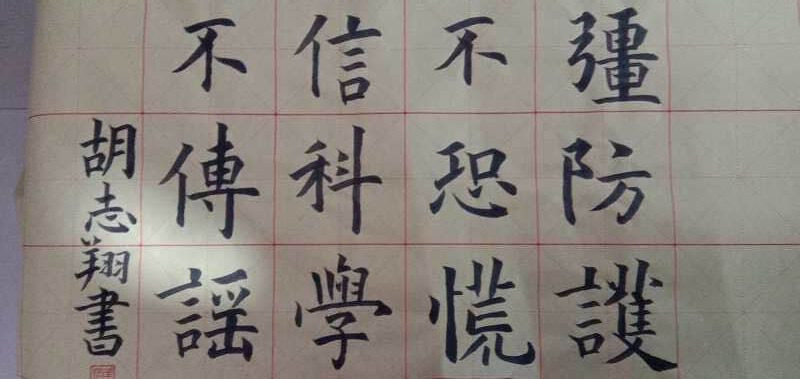 彊防護
不恐慌
信科學
不傳謡
胡志翔書